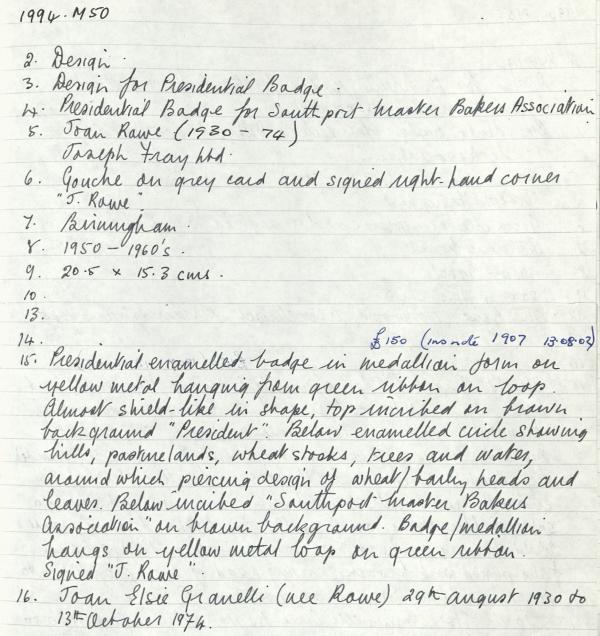 1994.M50
2. Design.
3. Design for Presidential Badge.
4. Presidential Badge for Southport Master Bakers Association
5. Joan Rawe (1930 - 74)
Joseph Fray Ltd.
6. Gouche on grey card and signed right-hand corner
"J. Rowe".
7. Birmingham.
8. 1950 - 1960's.
9. 20.5 x 15.3 cms.
10.
13.
14. £150 ( 1907 13.08.02)
15. Presidential enamelled badge in medallian form on
yellow metal hanging from green ribbon on loop.
Almost shield-like in shape, top incribed on brown
background "President". Below enamelled circle showing
hills, pasturelands, wheat stooks, trees and water,
around which piercing design of wheat/barley heads and
leaves. Below incribed "Southport Master Bakers
Association" on brown background. Badge/medallian
hangs on yellow metal loop on green ribbon.
Signed "J. Rowe".
16. Joan Elsie Granelli (nee Rowe) 29th August 1930 to
13th October 1974.